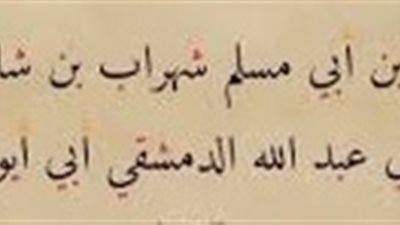 بن أبي مسلم شهراب بن شا
ي عبد الله الدمشقي أبي أيو